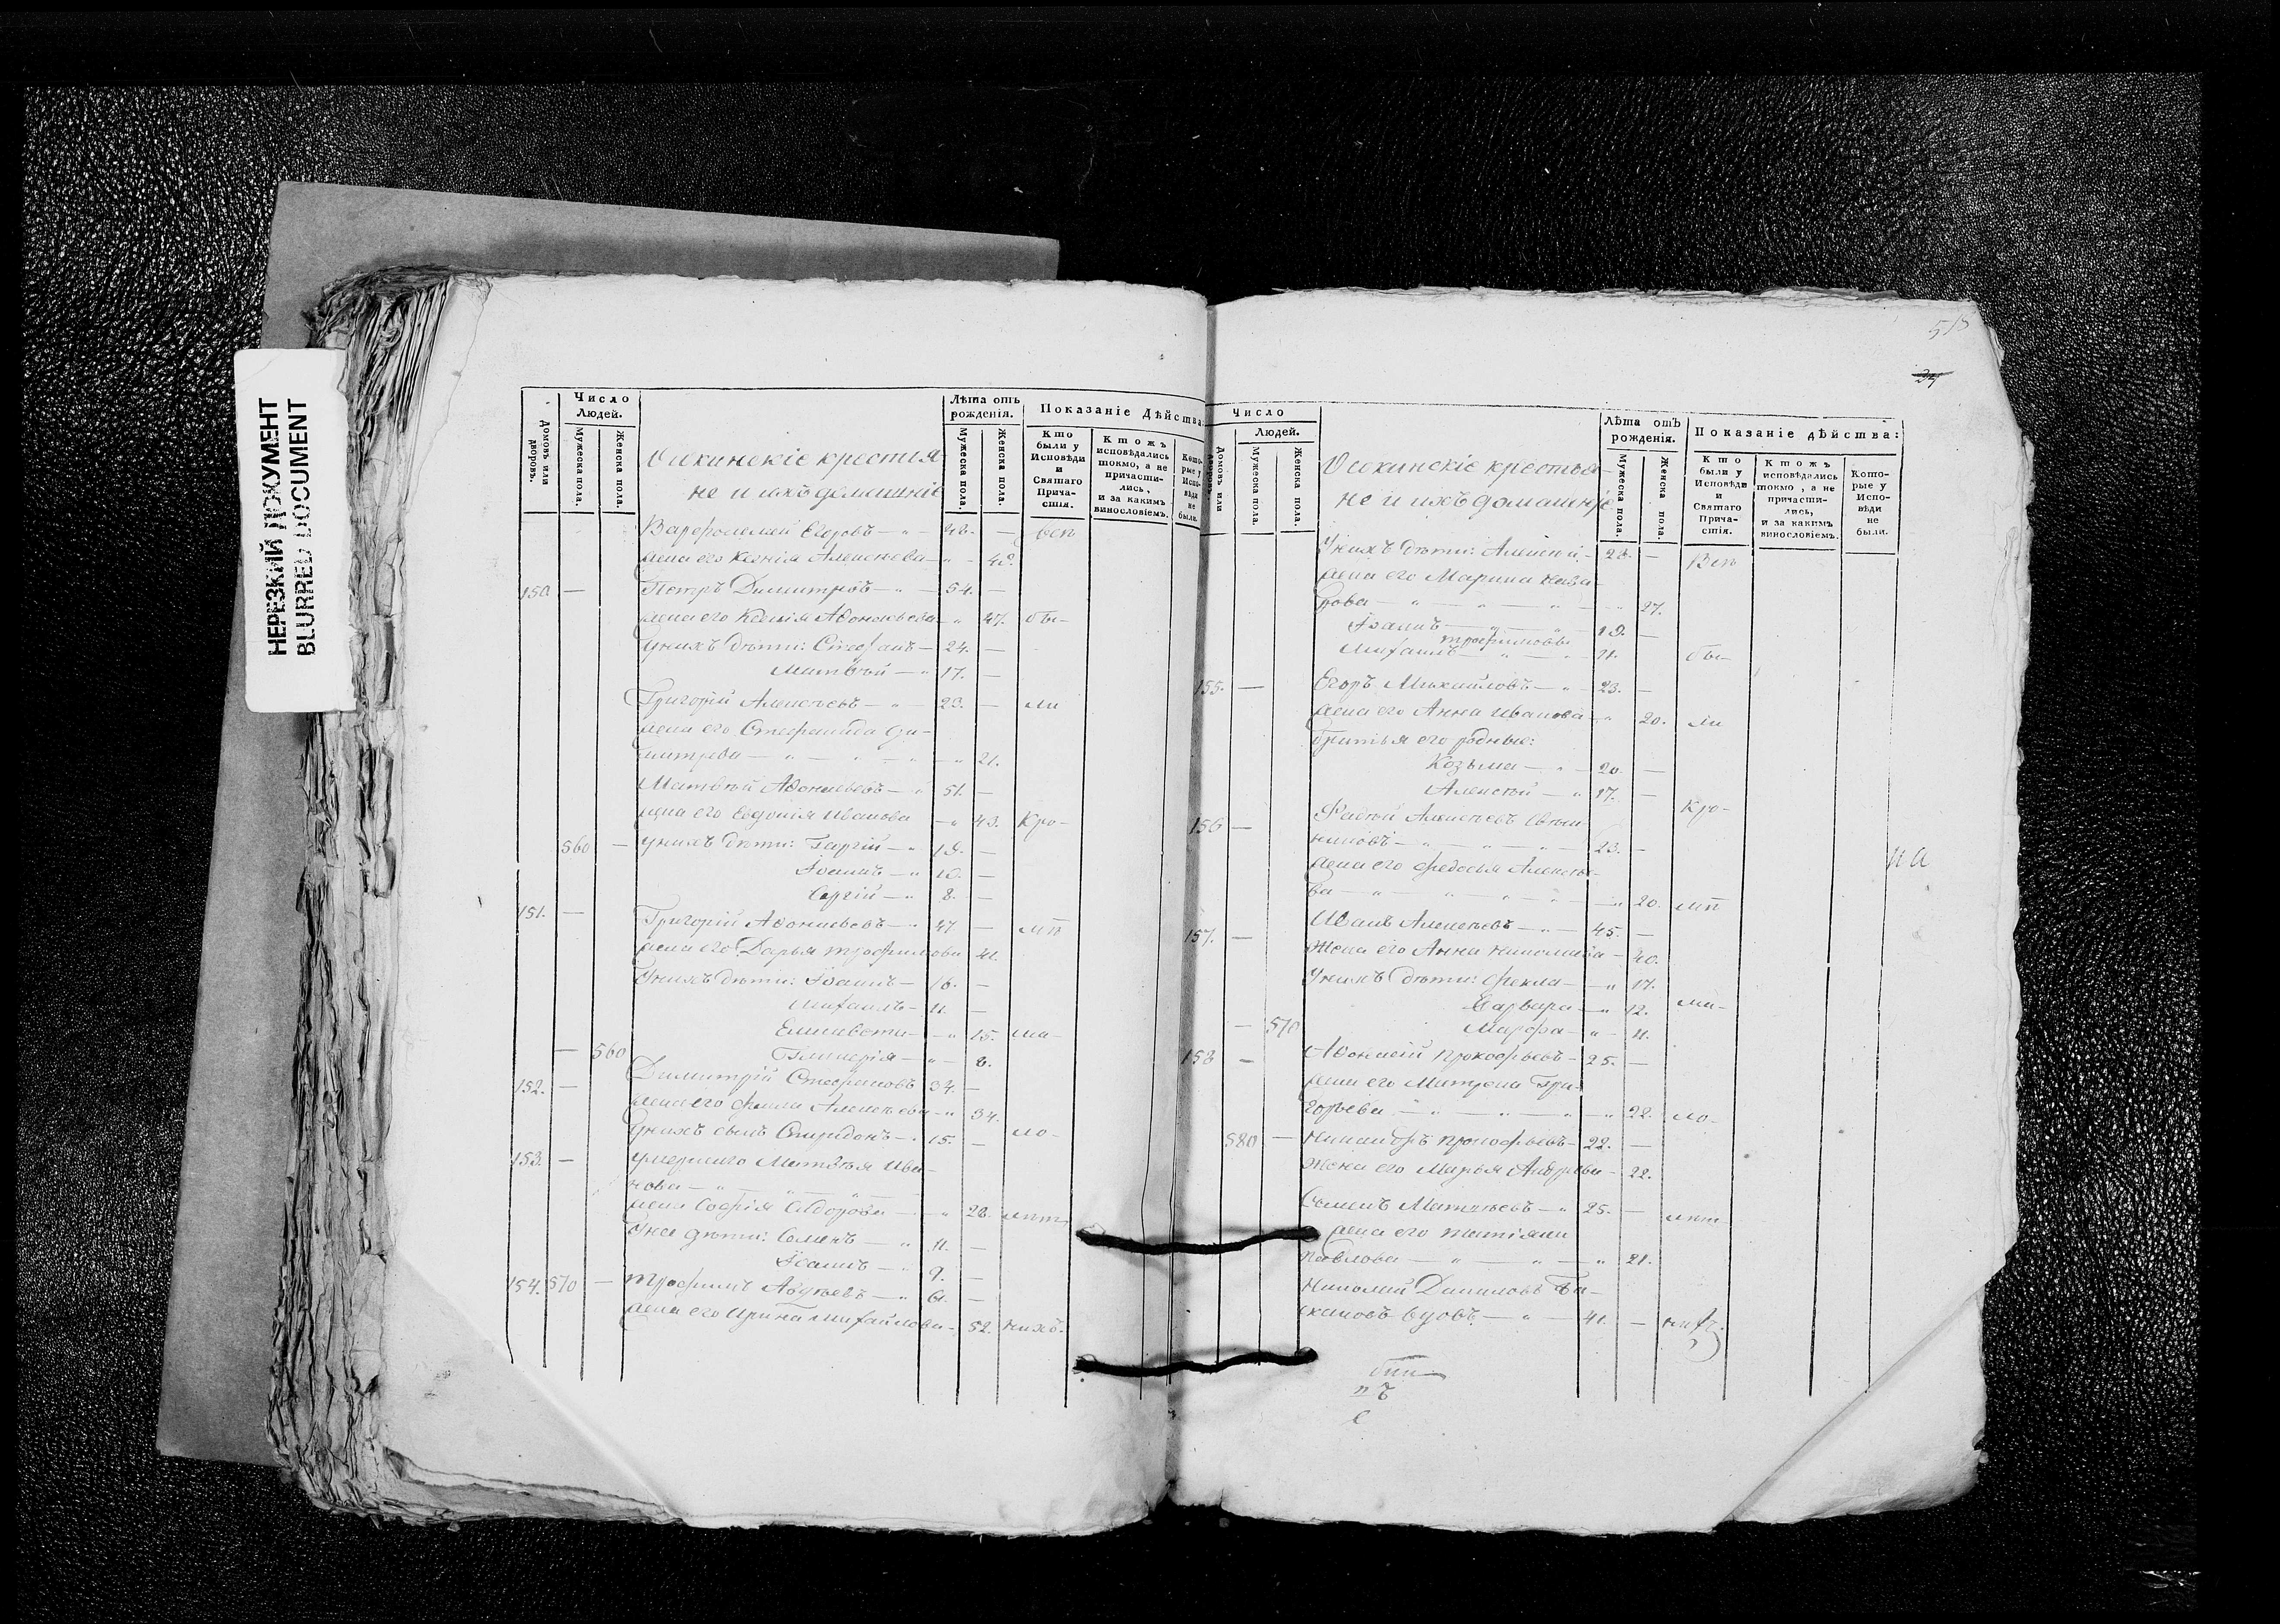 НЕРЕЗКИЙ ДОКУМЕНТ
BLURRED DOCUMENT
Число
Людей.
Домовъ или дворовъ.
Мужеска пола.
Женска пола.
крестья
не и ихъ домашніе
Лѣта отъ рожденія.
Мужеска пола.
Женска пола.
Показаніе Дѣйства:
Кто были у Исповѣди и Святаго Прича-стія.
Ктожъ исповѣдались токмо, а не причасти-лись, и за какимъ винословіемъ.
Кото-рые у Испо-вѣди не были.
Варфоломей Егоровъ — 48. —
жена его Ксенія Алексѣева —
150 — Петръ Димитріевъ — 54. —
жена его Ксенія Аѳонасьева — 47. бы-
у нихъ дѣти: Стефанъ — 24. —
Матвѣй — 17. —
Григорій Алексѣевъ — 23. — ли
жена его Стефанида Ди-
митрева — 21.
Матвѣй Аѳонасьевъ — 51. —
жена его Евдокія Иванова — 43. Кро-
560 — у нихъ дѣти: Георгій — 19. —
Іоаннъ — 10. —
Сергій — 8. —
151. — Григорій Аѳонасьевъ — 47. —
жена его Дарья Трофимова 41.
У нихъ дѣти: Іоаннъ — 16. —
Михаилъ — 11. —
Елисавета — 15. ма-
— 560 — 8.
152. — Димитрій Стефановъ 34. —
жена его Алексѣева — 34.
у нихъ сынъ Спиридонъ — 15. — ло-
153. — умершаго Матвѣя Ива-
нова —
жена Софія Сидорова — 28. лѣт-
У нея дѣти: Семенъ — 11. —
Іоаннъ — 9. —
154. 570 — Трофимъ Авдѣевъ — 61. —
жена его Ирина Михайлова — 52. нихъ.
513
34
Число
Людей.
Домовъ или дворовъ.
Мужеска пола.
Женска пола.
крестья-
не и ихъ домашніе
Лѣта отъ рожденія.
Мужеска пола.
Женска пола.
Показаніе дѣйства:
Кто были у Исповѣди и Святаго Прича-стія.
Ктожъ исповѣдались токмо, а не причасти-лись, и за какимъ винословіемъ.
Кото-рые у Испо-вѣди не были.
У нихъ дѣти: Алексѣй — 28. — Всѣ
жена его Марина Наза-
рова — 27.
Іоаннъ — 19. —
Трофимовъ
Михаилъ — 11. бы-
155. — Егоръ Михайловъ — 23. —
жена его Анна Иванова — 20. ли
братья его родные:
Козьма — 20. —
Алексѣй — 17. —
Кро-
156 — Фадѣй Алексѣевъ
23. —
жена его Федосья Алексѣе-
ва — 20.
157. — Иванъ Алексѣевъ — 45. —
Жена его Анна Николаева — 40.
У нихъ дѣти: Фекла — 17.
Варвара — 12. ма-
— 570 Марфа — 11.
158 — Аѳонасій Прокофьевъ — 25. —
жена его Матрена Гри-
горьева — 22. ло-
580 — Никандръ Прокофьевъ — 22. —
Жена его Марья Андреева — 22.
Семенъ Матвѣевъ — 25. — лѣт-
жена его Татіяна
Павлова — 21.
Николай Даниловъ
вдовъ — 41. — нихъ.